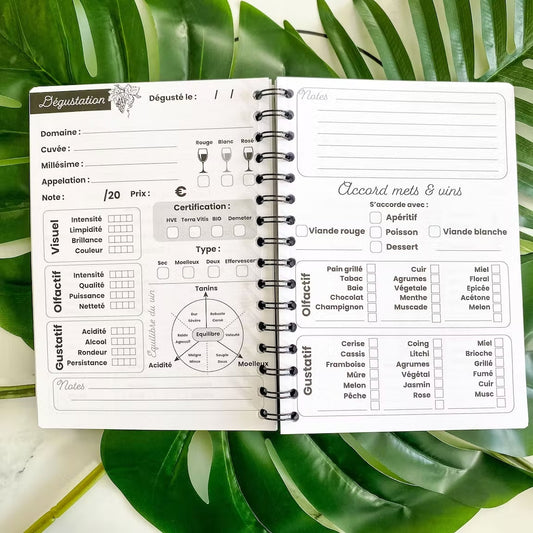 Dégustation
Dégusté le : / /
Domaine:
Cuvée :
Millésime :
Appelation:
Rouge Blanc Rosé
Note : /20 Prix : €
Certification :
HVE Terra Vitis BIO Demeter
Type :
Sec Moelleux Doux Effervescent
Visuel
Intensité
Limpidité
Brillance
Couleur
Olfactif
Intensité
Qualité
Puissance
Netteté
Gustatif
Acidité
Alcool
Rondeur
Persistance
Equilibre du vin
Tanins
Dur
Sévère
Robuste
Corsé
Raide
Agressif
Equilibre
Velouté
Maigre
Mince
Souple
Doux
Acidité
Moelleux
Notes
Notes
Accord mets & vins
S'accorde avec :
Apéritif
Viande rouge Poisson Viande blanche
Dessert
Olfactif
Pain grillé Cuir Miel
Tabac Agrumes Floral
Baie Végétale Epicée
Chocolat Menthe Acétone
Champignon Muscade Melon
Gustatif
Cerise Coing Miel
Cassis Litchi Brioche
Framboise Agrumes Grillé
Mûre Végétal Fumé
Melon Jasmin Cuir
Pêche Rose Musc